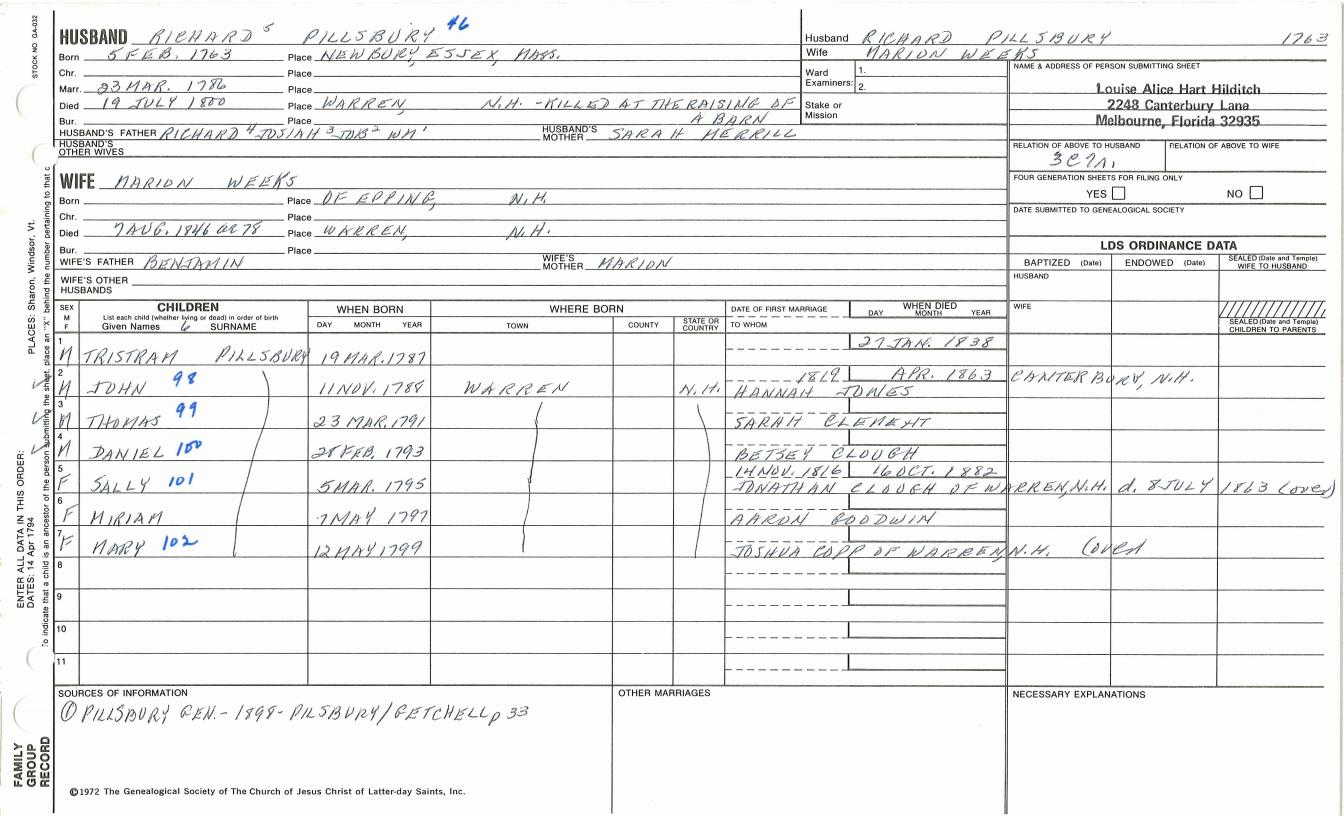 STOCK NO. GA-032
HUSBAND RICHARD 5 PILLSBURY 46
Born 5 FEB. 1763 Place NEWBURY, ESSEX, MASS.
Chr. Place
Marr. 23 MAR. 1786 Place
Died 19 JULY 1800 Place WARREN, N.H. - KILLED AT THE RAISING OF
Bur. Place A BARN
HUSBAND'S FATHER RICHARD 4 JOSIAH 3 JOB 2 WM 1 HUSBAND'S MOTHER SARAH MERRILL
HUSBAND'S OTHER WIVES
Husband RICHARD PILLSBURY 1763
Wife MARION WEEKS
Ward Examiners: 1.
2.
Stake or Mission
NAME & ADDRESS OF PERSON SUBMITTING SHEET
Louise Alice Hart Hilditch
2248 Canterbury Lane
Melbourne, Florida 32935
RELATION OF ABOVE TO HUSBAND RELATION OF ABOVE TO WIFE
FOUR GENERATION SHEETS FOR FILING ONLY
YES NO
DATE SUBMITTED TO GENEALOGICAL SOCIETY
WIFE MARION WEEKS
Born Place OF EPPING, N.H.
Chr. Place
Died 7 AUG. 1846 ae 78 Place WARREN, N.H.
Bur. Place
WIFE'S FATHER BENJAMIN WIFE'S MOTHER MARION
WIFE'S OTHER HUSBANDS
LDS ORDINANCE DATA
BAPTIZED (Date) ENDOWED (Date) SEALED (Date and Temple) WIFE TO HUSBAND
HUSBAND
WIFE
SEALED (Date and Temple) CHILDREN TO PARENTS
SEX M F CHILDREN WHEN BORN WHERE BORN DATE OF FIRST MARRIAGE WHEN DIED
List each child (whether living or dead) in order of birth
Given Names 6 SURNAME DAY MONTH YEAR TOWN COUNTY STATE OR COUNTRY TO WHOM DAY MONTH YEAR
1 27 JAN. 1838
M TRISTRAM PILLSBURY 19 MAR. 1787
2 1819 APR. 1863 CANTERBURY, N.H.
M JOHN 98 11 NOV. 1788 WARREN N.H. HANNAH JONES
3
M THOMAS 99 23 MAR. 1791 SARAH CLEMENT
4
M DANIEL 100 28 FEB. 1793 BETSEY CLOUGH
5 14 NOV. 1816 16 OCT. 1882
F SALLY 101 5 MAR. 1795 JONATHAN CLOUGH OF WARREN, N.H. d. 8 JULY 1863 (over)
6
F MIRIAM 7 MAY 1797 AARON GOODWIN
7
F MARY 102 12 MAY 1799 JOSHUA COPP OF WARREN, N.H. (over)
8
9
10
11
SOURCES OF INFORMATION OTHER MARRIAGES NECESSARY EXPLANATIONS
① PILLSBURY GEN. - 1898 - PILSBURY/GETCHELL p 33
©1972 The Genealogical Society of The Church of Jesus Christ of Latter-day Saints, Inc.
FAMILY
GROUP
RECORD
ENTER ALL DATA IN THIS ORDER:
DATES: 14 Apr 1794
PLACES: Sharon, Windsor, Vt.
To indicate that a child is an ancestor of the person submitting the sheet, place an "X" behind the number pertaining to that c